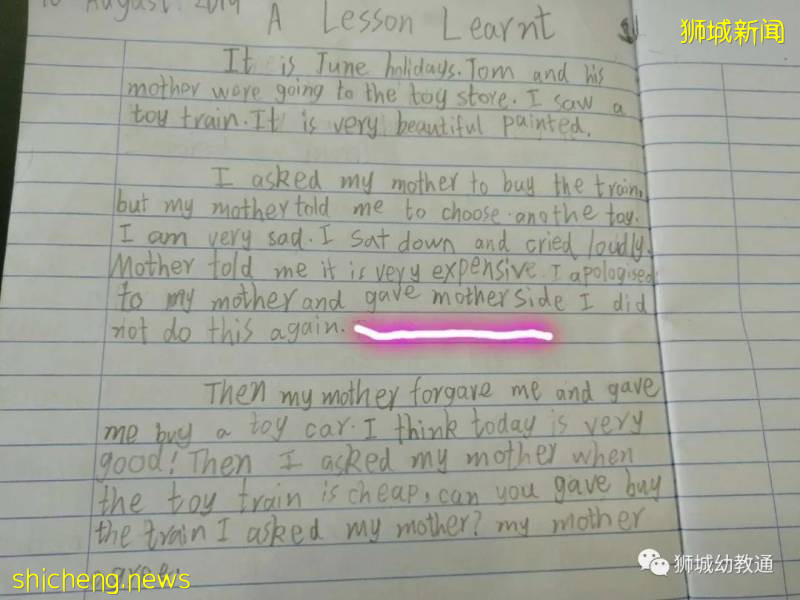 August 2019
A Lesson Learnt
狮城新闻
It is June holidays. Tom and his
mother were going to the toy store. I saw a
toy train. It is very beautiful painted.
I asked my mother to buy the train,
but my mother told me to choose anothe toy.
I am very sad. I sat down and cried loudly.
Mother told me it is very expensive. I apologised
to my mother and gave mother side I did
not do this again.
Then my mother forgave me and gave
me buy a toy car. I think today is very
good! Then I asked my mother when
the toy train is cheap, can you gave buy
the train I asked my mother? my mother
狮城幼教通
shicheng.news